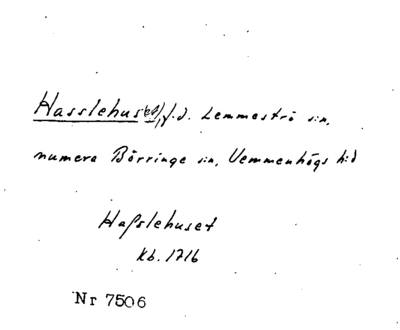 Hasslehus(et), f.d. Lemmeströ sn,
numera Börringe sn, Vemmenhögs hd
Haſslehuset
Kb. 1716
Nr 7506